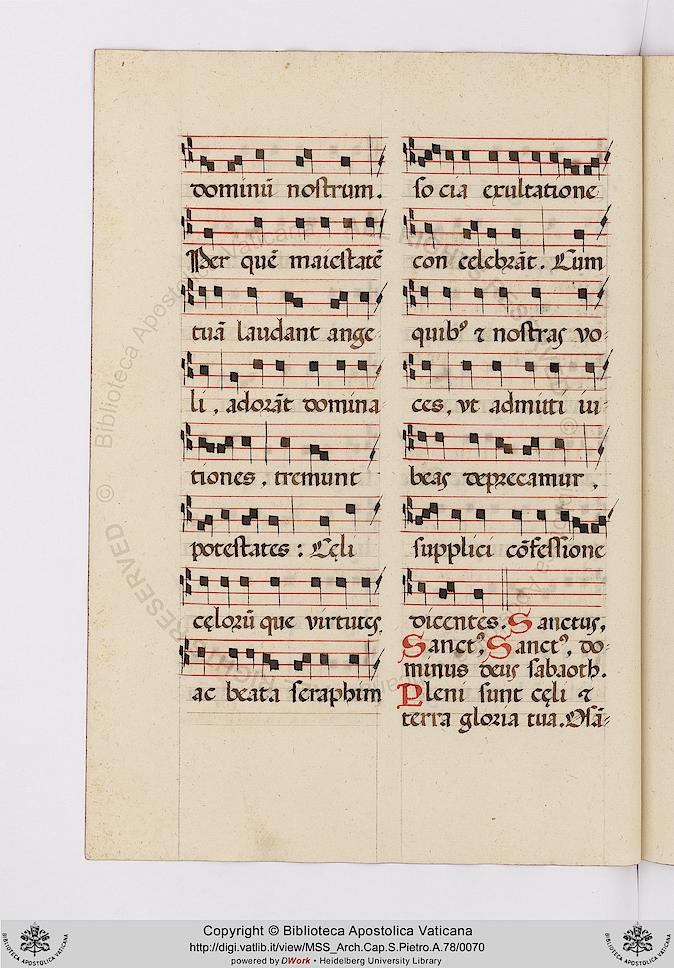 dominū nostrum.
Per quē maiestatē
tuā laudant ange
li, adorāt domina
tiones, tremunt
potestates : Cęli
cęlorū que virtutes,
ac beata seraphim
so cia exultatione
con celebrāt. Cum
quibꝰ ⁊ nostras vo
ces, vt admitti iu
beas deprecamur,
supplici cōfessione
dicentes. Sanctus,
Sanctꝰ, Sanctꝰ, do-
minus deus sabaoth.
Pleni sunt cęli ⁊
terra gloria tua. Osā-
RIGHTS RESERVED © Biblioteca Apostolica Vaticana
Copyright © Biblioteca Apostolica Vaticana
http://digi.vatlib.it/view/MSS_Arch.Cap.S.Pietro.A.78/0070
powered by DWork • Heidelberg University Library